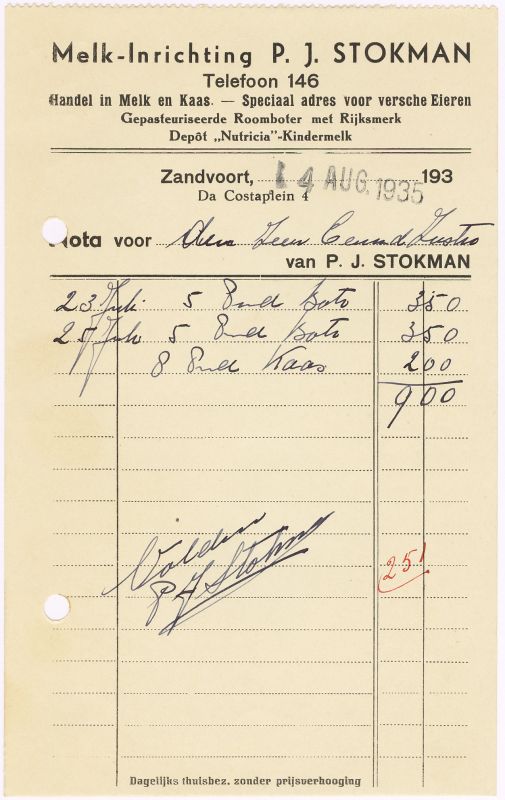 Melk-Inrichting P. J. STOKMAN
Telefoon 146
Handel in Melk en Kaas. — Speciaal adres voor versche Eieren
Gepasteuriseerde Roomboter met Rijksmerk
Depôt „Nutricia"-Kindermelk
Zandvoort, 4 AUG. 1935 193
Da Costaplein 4
Nota voor den Heer
van P. J. STOKMAN
23 Juli 5 Pnd Boto 350
25 Juli 5 Pnd Boto 350
8 Pnd Kaas 200
900
Voldaan
P J Stokman
251
Dagelijks thuisbez. zonder prijsverhooging